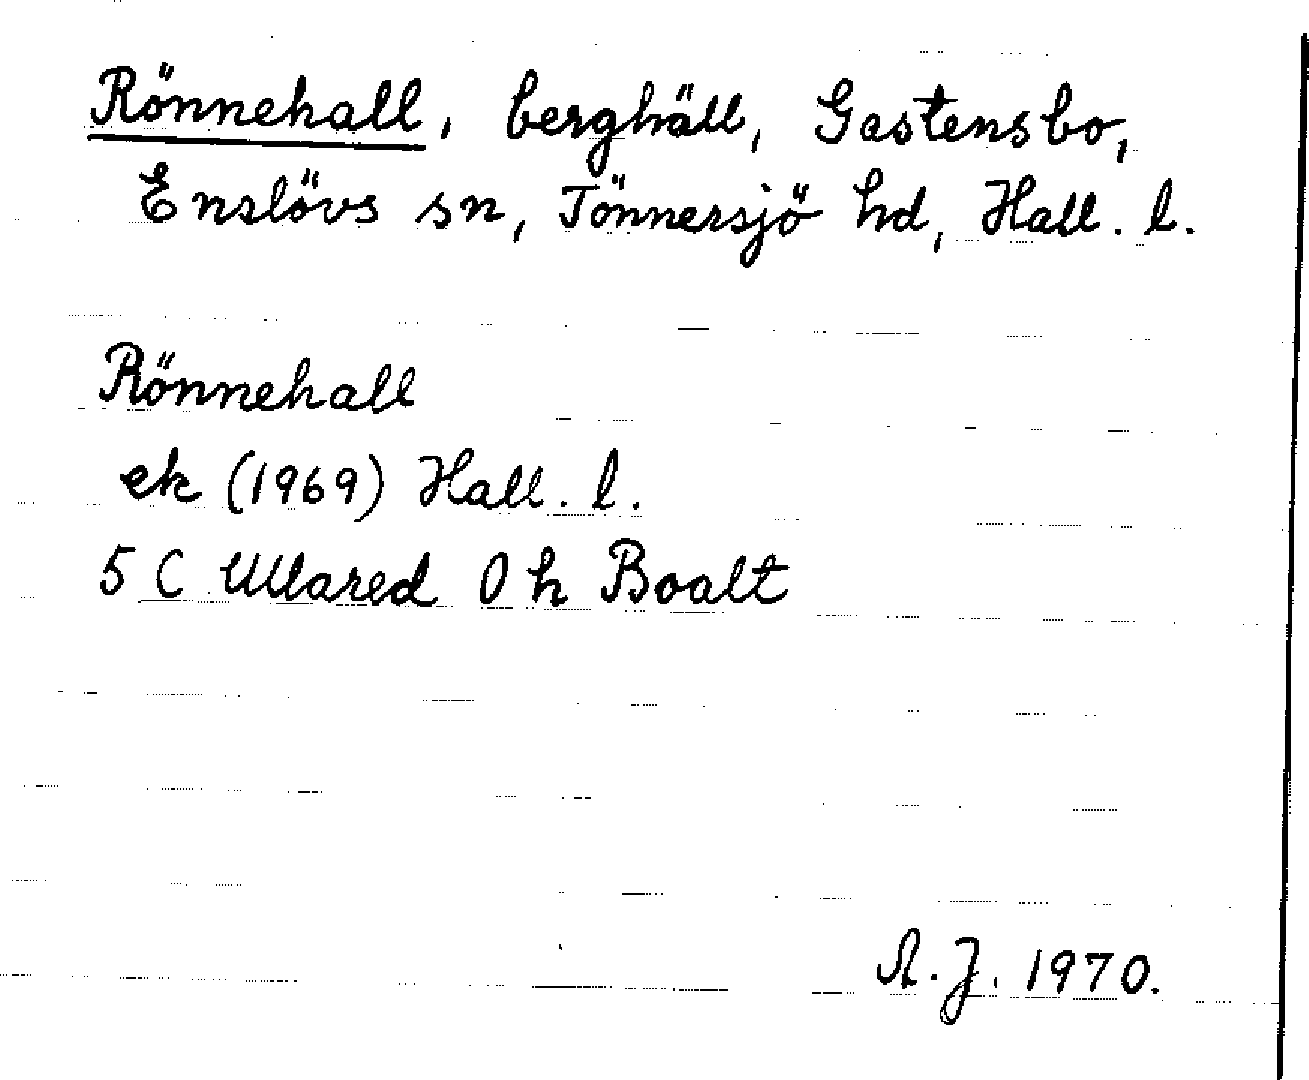 Rönnehall, berghäll, Gastensbo,
Enslövs sn, Tönnersjö hd, Hall. l.
Rönnehall
ek (1969) Hall. l.
5 C Ullared 0 h Boalt
A. J. 1970.